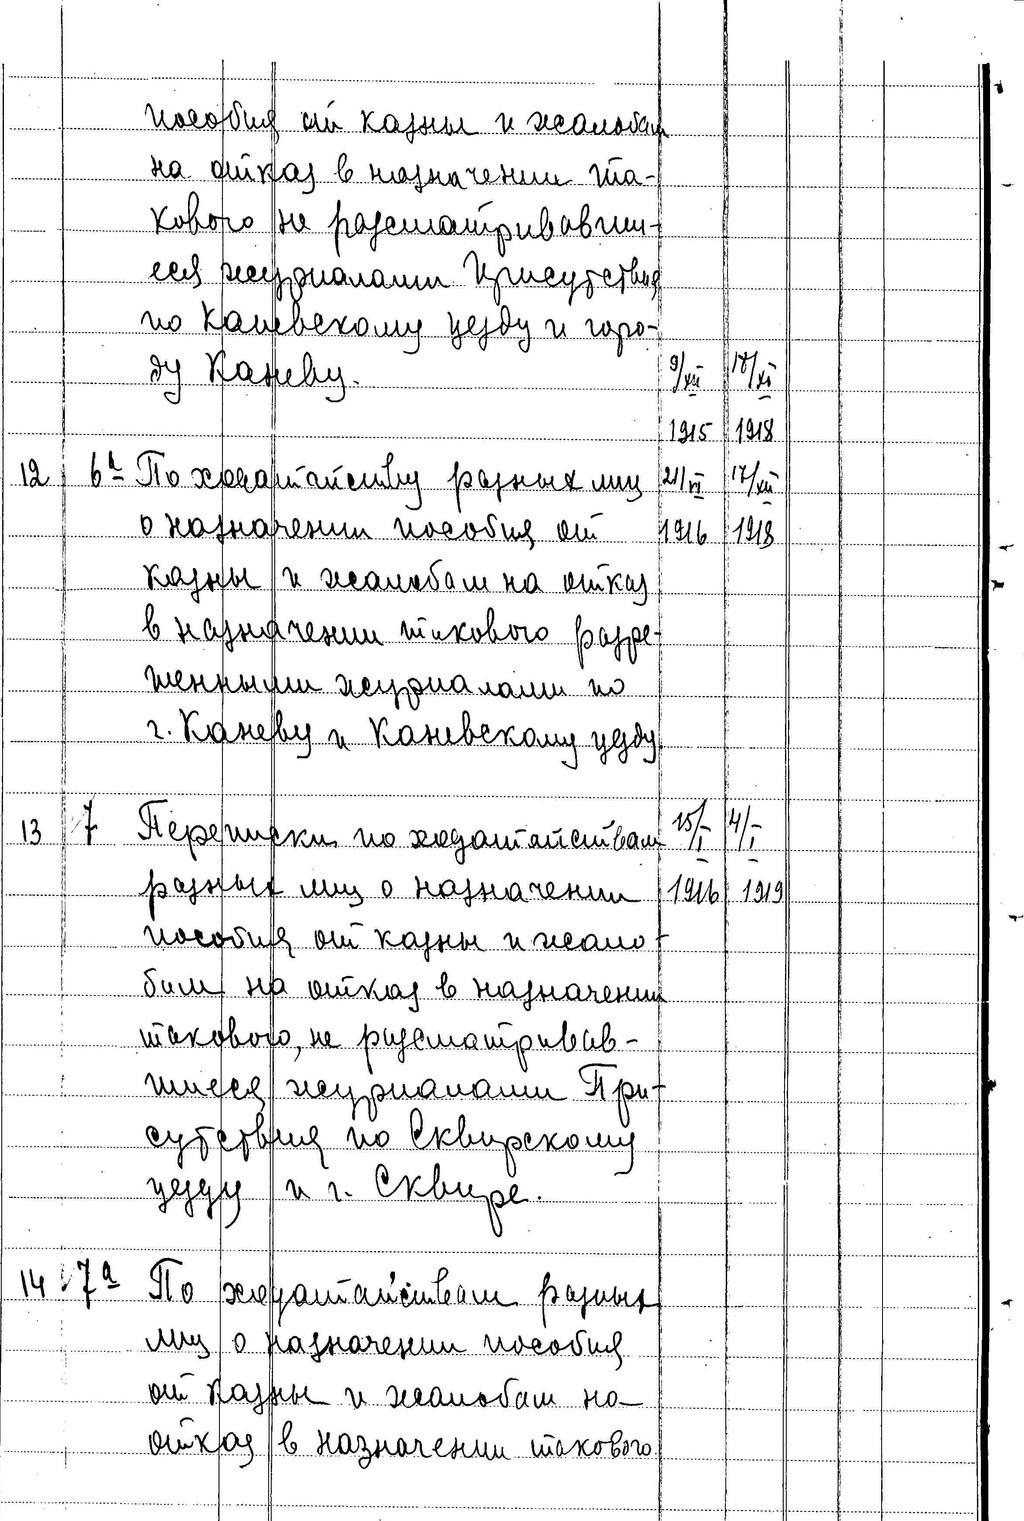 пособия от казны и жалобам
на отказ в назначении та-
кового не разсматривавши-
еся журналами Присутствия
по Каневскому уезду и горо-
ду Каневу. 9/XII 18/XI
1915 1918
12 6а По ходатайству разных лиц 21/VI 17/XII
о назначении пособия от 1916 1918
казны и жалобам на отказ
в назначении такового разре-
шенными журналами по
г. Каневу и Каневскому уезду
13 7 Переписки по ходатайствам 15/I 4/I
разных лиц о назначении 1916 1919
пособия от казны и жало-
бам на отказ в назначении
такового, не разсматривав-
шиеся журналами При-
сутствия по Сквирскому
уезду и г. Сквире.
14 7а По ходатайствам разных
лиц о назначении пособия
от казны и жалобам на
отказ в назначении такового